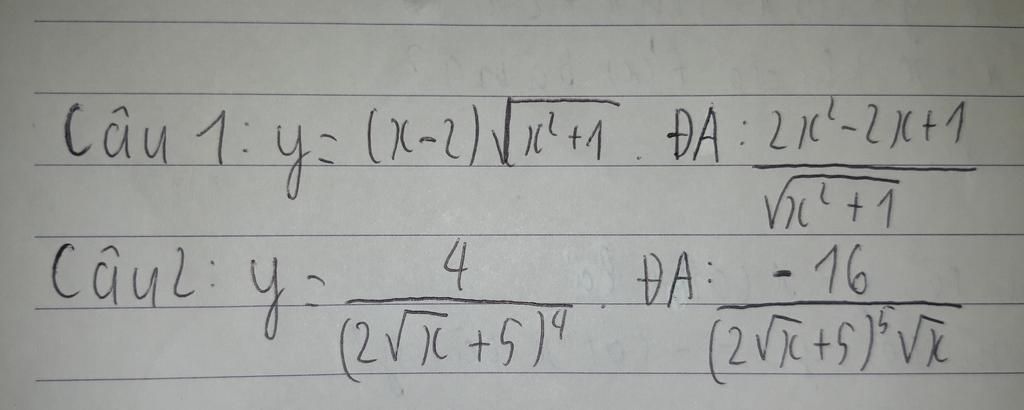 Câu 1: y = (x-2)√(x²+1). ĐA: (2x²-2x+1)/√(x²+1)
Câu 2: y = 4/(2√x+5)⁴. ĐA: -16/((2√x+5)⁵√x)